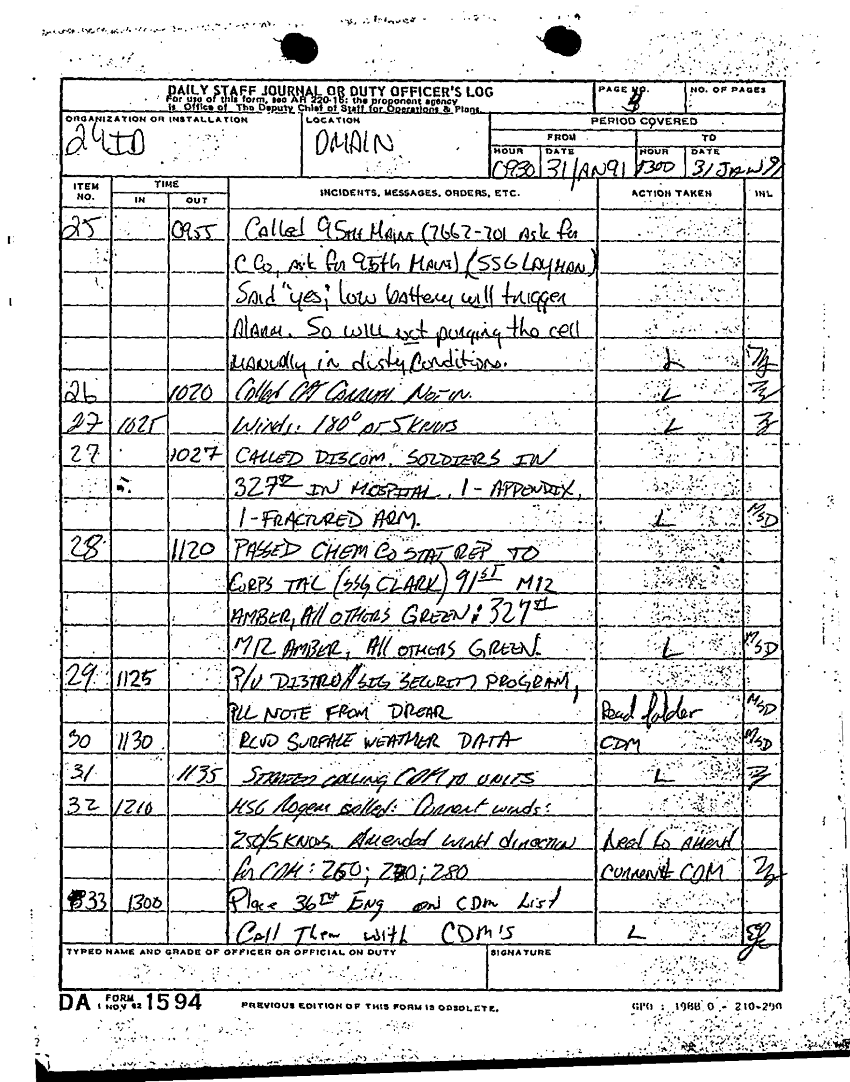 DAILY STAFF JOURNAL OR DUTY OFFICER'S LOG
For use of this form, see AR 220-15; the proponent agency
is Office of The Deputy Chief of Staff for Operations & Plans.
PAGE NO.
3
NO. OF PAGES
ORGANIZATION OR INSTALLATION
24 ID
LOCATION
DMAIN
PERIOD COVERED
FROM
TO
HOUR
DATE
HOUR
DATE
0930
31 JAN 91
1300
31 JAN 91
ITEM NO.
TIME
IN
OUT
INCIDENTS, MESSAGES, ORDERS, ETC.
ACTION TAKEN
INL
25 0955 Called 95th Maint (7662-701 ask for
C Co, ask for 95th Maint) (SSG LAYMAN)
Said "yes," low battery will trigger
Alarm. So will not purging the cell
manually in dusty conditions. L
26 1020 Called Not in. L
27 1025 Winds: 180° AT 5 KNOTS L
27 1027 CALLED DISCOM. SOLDIERS IN
327th IN HOSPITAL. 1 - APPENDIX,
1 - FRACTURED ARM. L MSD
28 1120 PASSED CHEM CO STAT REP TO
CORPS TAC (SSG CLARK) 91ST M12
AMBER, All OTHERS GREEN; 327th
M12 AMBER, All OTHERS GREEN. L MSD
29 1125 P/U DISTRO // SIG SECURITY PROGRAM,
PLL NOTE FROM DREAR Read folder MSD
30 1130 RCVD SURFACE WEATHER DATA CDM MSD
31 1135 Started calling CDM TO UNITS L
32 1210 MSG Rogers called: Current winds:
250/5 KNOTS. Amended wind direction Need to amend
for CDM: 260; 270; 280 current CDM
33 1300 Place 36th Eng on CDM List
Call Them with CDM's L
TYPED NAME AND GRADE OF OFFICER OR OFFICIAL ON DUTY
SIGNATURE
DA FORM 1 NOV 62 1594
PREVIOUS EDITION OF THIS FORM IS OBSOLETE.
GPO : 1988 O - 210-290